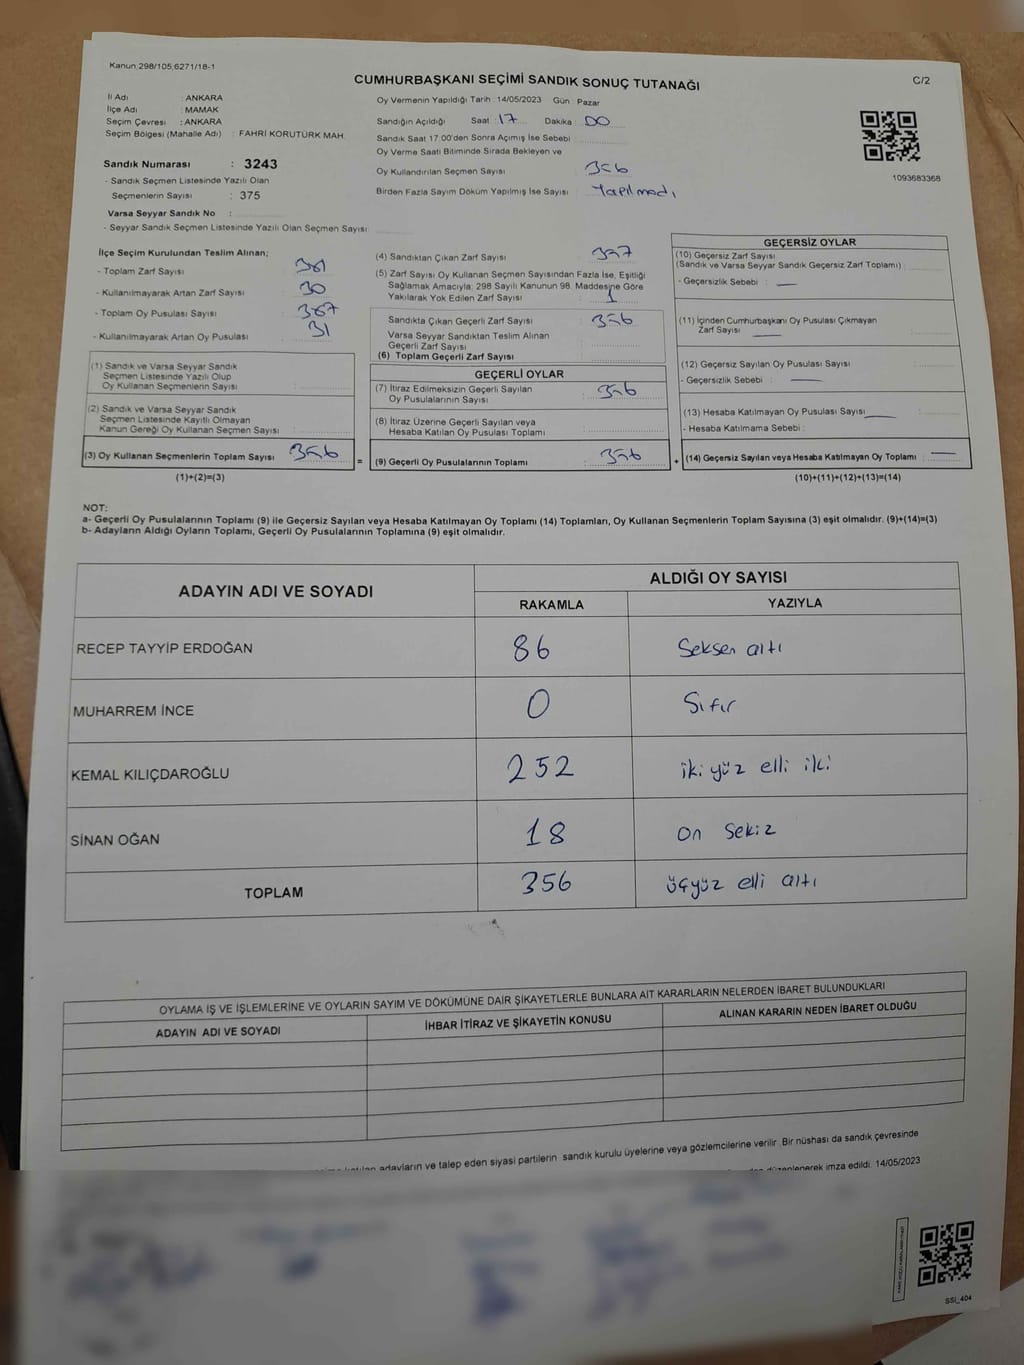 Kanun;298/105,6271/18-1
CUMHURBAŞKANI SEÇİMİ SANDIK SONUÇ TUTANAĞI
C/2
İl Adı : ANKARA
İlçe Adı : MAMAK
Seçim Çevresi : ANKARA
Seçim Bölgesi (Mahalle Adı) : FAHRİ KORUTÜRK MAH.
Sandık Numarası : 3243
- Sandık Seçmen Listesinde Yazılı Olan
Seçmenlerin Sayısı : 375
Varsa Seyyar Sandık No :
- Seyyar Sandık Seçmen Listesinde Yazılı Olan Seçmen Sayısı:
Oy Vermenin Yapıldığı Tarih :14/05/2023 Gün : Pazar
Sandığın Açıldığı Saat : 17 Dakika : 00
Sandık Saat 17.00'den Sonra Açımış İse Sebebi :
Oy Verme Saati Bitiminde Sırada Bekleyen ve
Oy Kullandırılan Seçmen Sayısı : 356
Birden Fazla Sayım Döküm Yapılmış İse Sayısı : Yapılmadı
1093683368
İlçe Seçim Kurulundan Teslim Alınan;
- Toplam Zarf Sayısı :
- Kullanılmayarak Artan Zarf Sayısı : 30
- Toplam Oy Pusulası Sayısı : 387
- Kullanılmayarak Artan Oy Pusulası : 31
(1) Sandık ve Varsa Seyyar Sandık
Seçmen Listesinde Yazılı Olup
Oy Kullanan Seçmenlerin Sayısı :
(2) Sandık ve Varsa Seyyar Sandık
Seçmen Listesinde Kayıtlı Olmayan
Kanun Gereği Oy Kullanan Seçmen Sayısı :
(3) Oy Kullanan Seçmenlerin Toplam Sayısı : 356
(1)+(2)=(3)
(4) Sandıktan Çıkan Zarf Sayısı : 357
(5) Zarf Sayısı Oy Kullanan Seçmen Sayısından Fazla İse, Eşitliği
Sağlamak Amacıyla; 298 Sayılı Kanunun 98. Maddesine Göre
Yakılarak Yok Edilen Zarf Sayısı : 1
Sandıkta Çıkan Geçerli Zarf Sayısı : 356
Varsa Seyyar Sandıktan Teslim Alınan
Geçerli Zarf Sayısı :
(6) Toplam Geçerli Zarf Sayısı :
GEÇERLİ OYLAR
(7) İtiraz Edilmeksizin Geçerli Sayılan
Oy Pusulalarının Sayısı : 356
(8) İtiraz Üzerine Geçerli Sayılan veya
Hesaba Katılan Oy Pusulası Toplamı :
= (9) Geçerli Oy Pusulalarının Toplamı : 356
GEÇERSİZ OYLAR
(10) Geçersiz Zarf Sayısı
(Sandık ve Varsa Seyyar Sandık Geçersiz Zarf Toplamı) :
- Geçersizlik Sebebi : —
(11) İçinden Cumhurbaşkanı Oy Pusulası Çıkmayan
Zarf Sayısı : —
(12) Geçersiz Sayılan Oy Pusulası Sayısı :
- Geçersizlik Sebebi : —
(13) Hesaba Katılmayan Oy Pusulası Sayısı : —
- Hesaba Katılmama Sebebi :
+ (14) Geçersiz Sayılan veya Hesaba Katılmayan Oy Toplamı : —
(10)+(11)+(12)+(13)=(14)
NOT:
a- Geçerli Oy Pusulalarının Toplamı (9) ile Geçersiz Sayılan veya Hesaba Katılmayan Oy Toplamı (14) Toplamları, Oy Kullanan Seçmenlerin Toplam Sayısına (3) eşit olmalıdır. (9)+(14)=(3)
b- Adayların Aldığı Oyların Toplamı, Geçerli Oy Pusulalarının Toplamına (9) eşit olmalıdır.
ADAYIN ADI VE SOYADI
ALDIĞI OY SAYISI
RAKAMLA YAZIYLA
RECEP TAYYİP ERDOĞAN 86 Seksen altı
MUHARREM İNCE 0 Sıfır
KEMAL KILIÇDAROĞLU 252 iki yüz elli iki
SİNAN OĞAN 18 On sekiz
TOPLAM 356 üçyüz elli altı
OYLAMA İŞ VE İŞLEMLERİNE VE OYLARIN SAYIM VE DÖKÜMÜNE DAİR ŞİKAYETLERLE BUNLARA AİT KARARLARIN NELERDEN İBARET BULUNDUKLARI
ADAYIN ADI VE SOYADI İHBAR İTİRAZ VE ŞİKAYETİN KONUSU ALINAN KARARIN NEDEN İBARET OLDUĞU
adayların ve talep eden siyasi partilerin sandık kurulu üyelerine veya gözlemcilerine verilir. Bir nüshası da sandık çevresinde
düzenlenerek imza edildi. 14/05/2023
SSİ_404